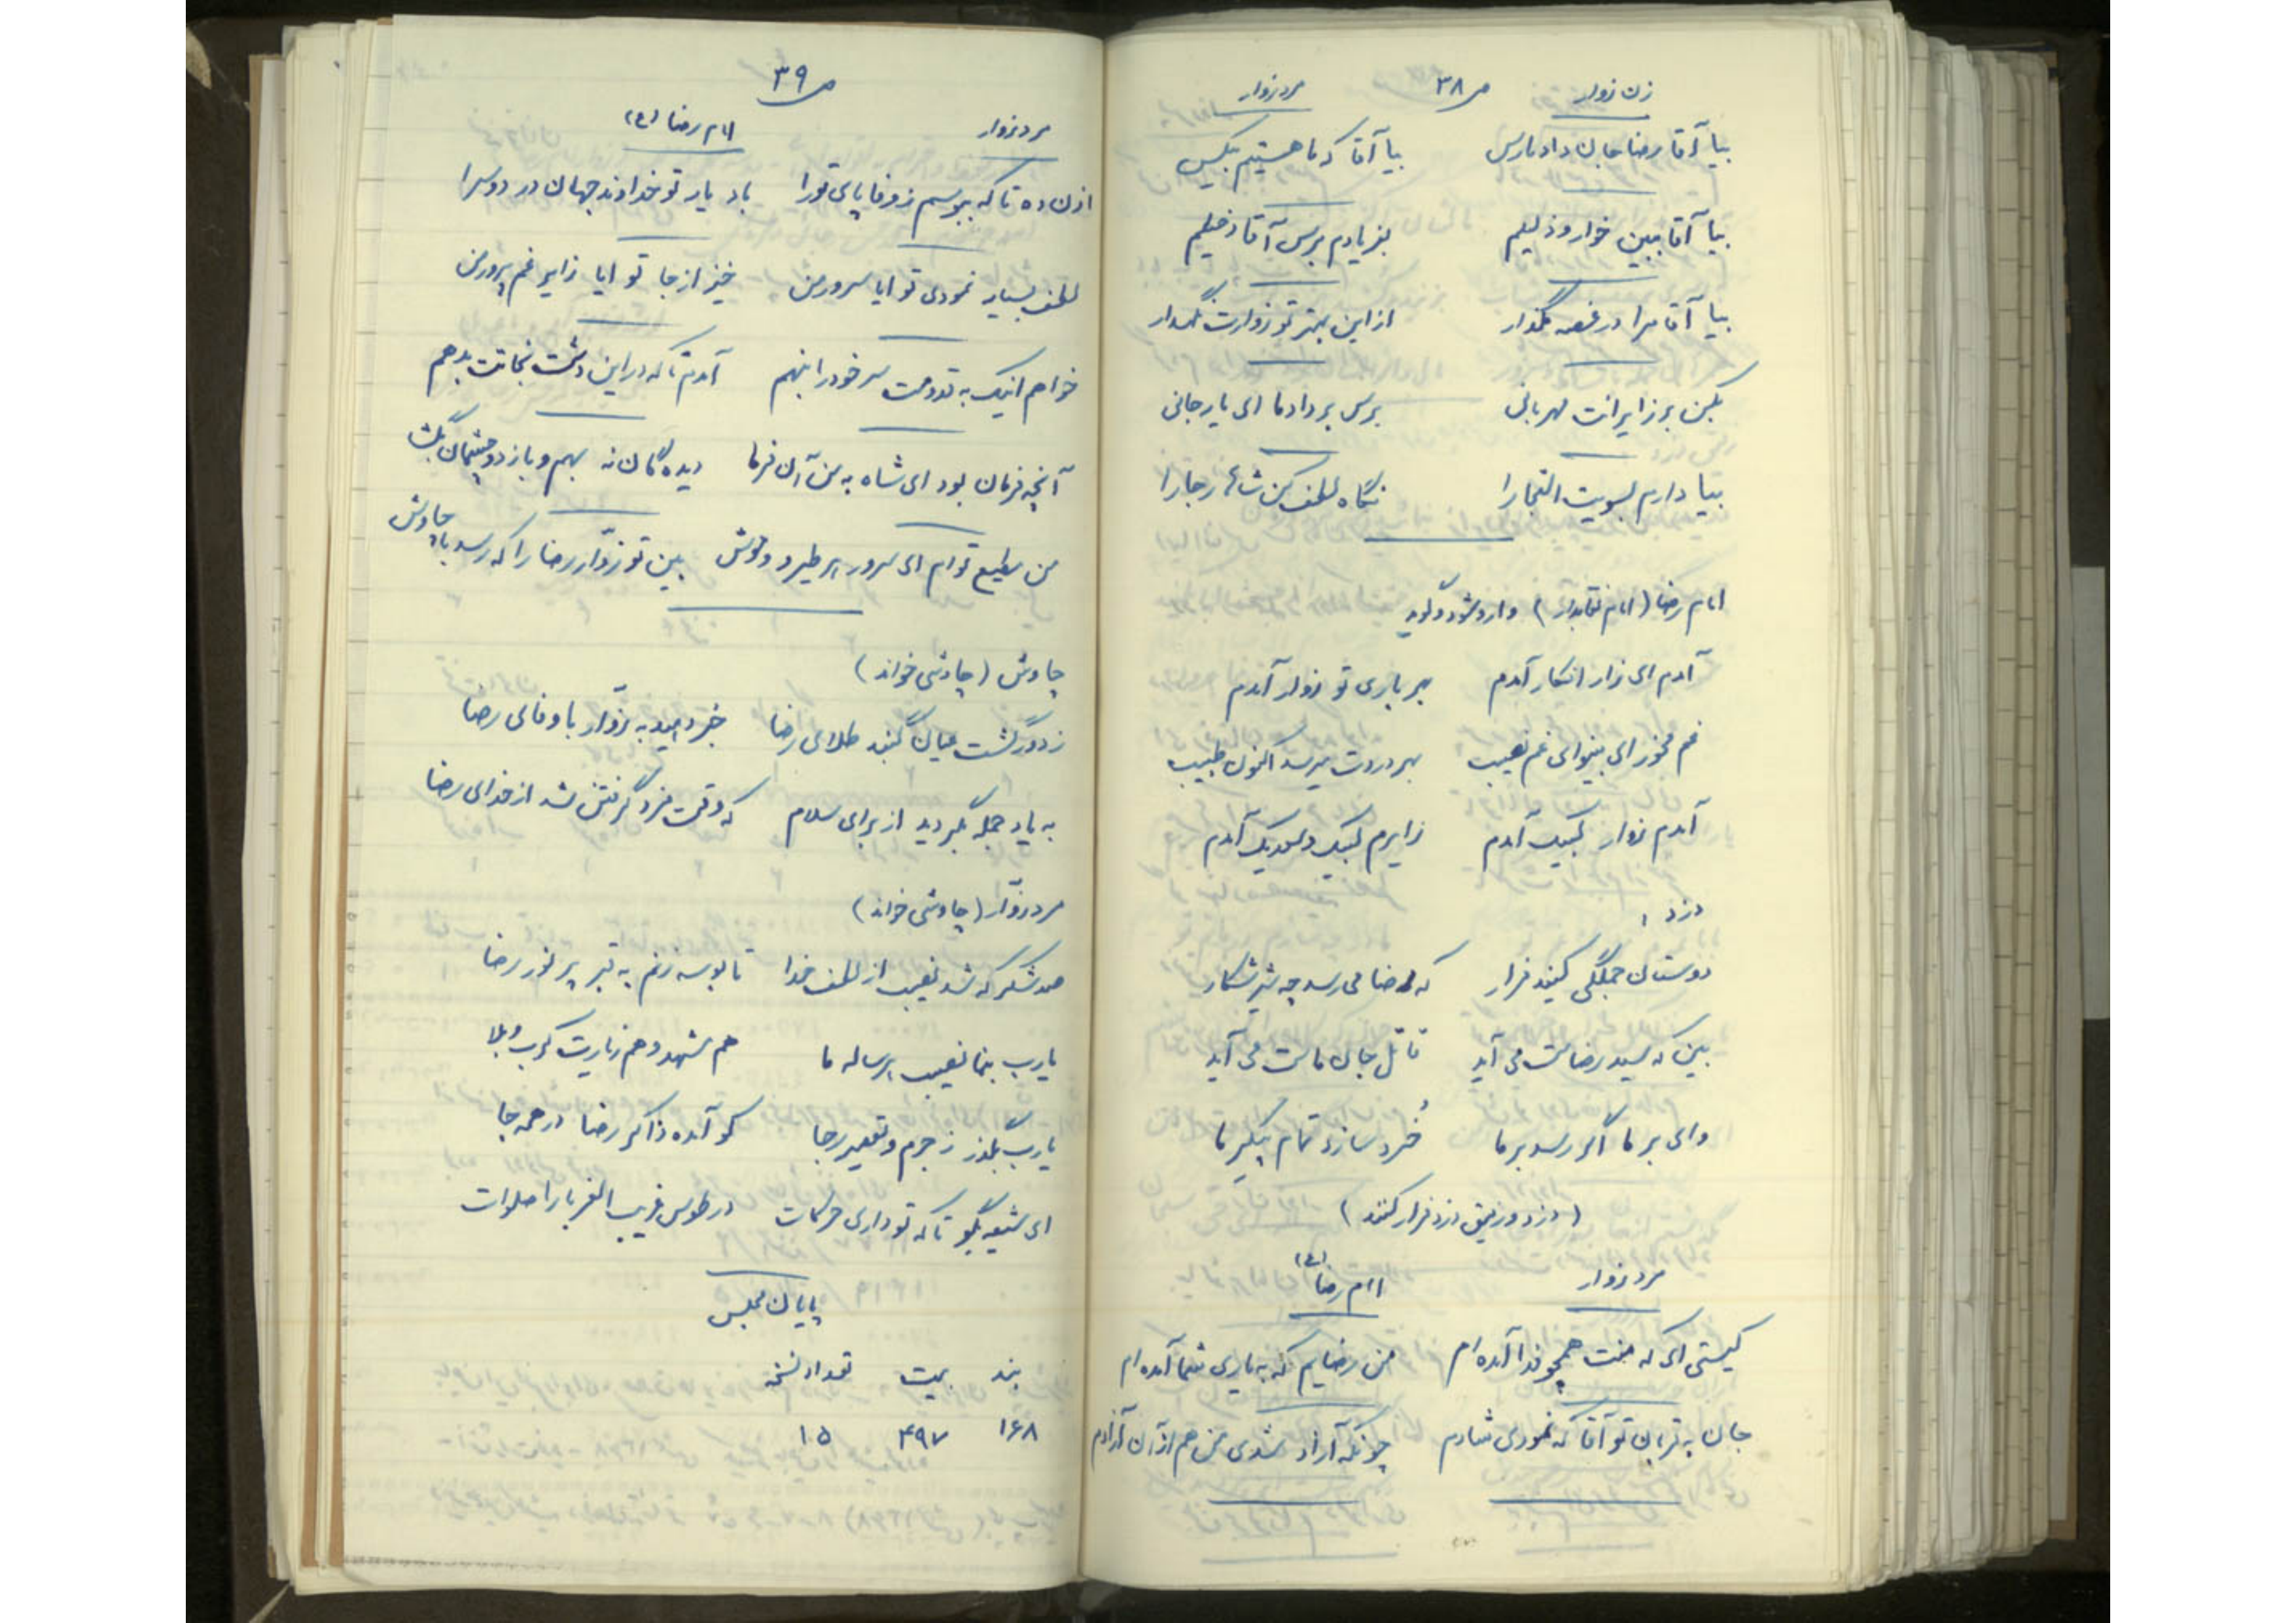 زن زوار ص ۳۸ مرد زوار
بیا آقا رضا جان داد مارس بیا آقا که ما هستیم بیکس
بیا آقا ببین خوار و ذلیلم بفریادم برس آقا دخیلم
بیا آقا مرا در غصه مگذار از این بهتر تو زوارت نگهدار
بکن بر زایرانت مهربانی برس بر داد ما ای یار جانی
بیا دارم بسویت التجا را نگاه لطف کن شاها رجا را
امام رضا (امام نقابدار) وارد شود و گوید
آمدم ای زار افکار آمدم بهر یاری تو زوار آمدم
غم مخور ای بینوای غم نصیب بهر دردت میرسد اکنون طبیب
آمدم زوار لبیک آمدم زایرم لبیک و سعدیک آمدم
دزد ۱
دوستان جملگی کنید فرار که رضا می رسد چه شیر شکار
بین که سید رضاست می آید قاتل جان ماست می آید
وای بر ما اگر رسد بر ما خُرد سازد تمام پیکر ما
(دزد و رفیق دزد فرار کنند)
مرد زوار امام رضا (ع)
کیستی ای که منت همچو فدا آمده ام من رضایم که به یاری شما آمده ام
جان به قربان تو آقا که نمودی شادم چونکه آزاد شدی من هم از آن آزادم
ص ۳۹
مرد زوار امام رضا (ع)
اذن ده تا که ببوسم ز وفا پای تو را باد یار تو خداوند جهان در دو سرا
لطف بسیار نمودی تو ایا سرور من خیز از جا تو ایا زایر غم پرور من
خواهم اینک به قدومت سر خود را بنهم آمدم تا که در این دشت نجاتت بدهم
آنچه فرمان بود ای شاه به من آن فرما دیده گان نه بهم و باز دو چشمان بگشا
من مطیع تو ام ای سرور هر طیر و وحوش بین تو زوّار رضا را که رسد با چاوش
چاوش (چاوشی خواند)
ز دور گشت عیان گنبد طلای رضا خبر دهید به زوّار با وفای رضا
به یاد جمله بگیرید از برای سلام که وقت مزد گرفتن شد از خدای رضا
مرد زوّار (چاوشی خواند)
صد شکر که شد نصیب از لطف خدا تا بوسه زنم به قبر پر نور رضا
یارب بنما نصیب هر ساله ما هم مشهد و هم زیارت کرب و بلا
یارب بگذر ز جرم و تقصیر رجا کو آمده ذاکر رضا در همه جا
ای شیعه بگو تا که تو داری حرکات در طوس غریب الغربا را صلوات
پایان مجلس
بند بیت تعداد نسخه
۱۶۸ ۴۹۷ ۱۵